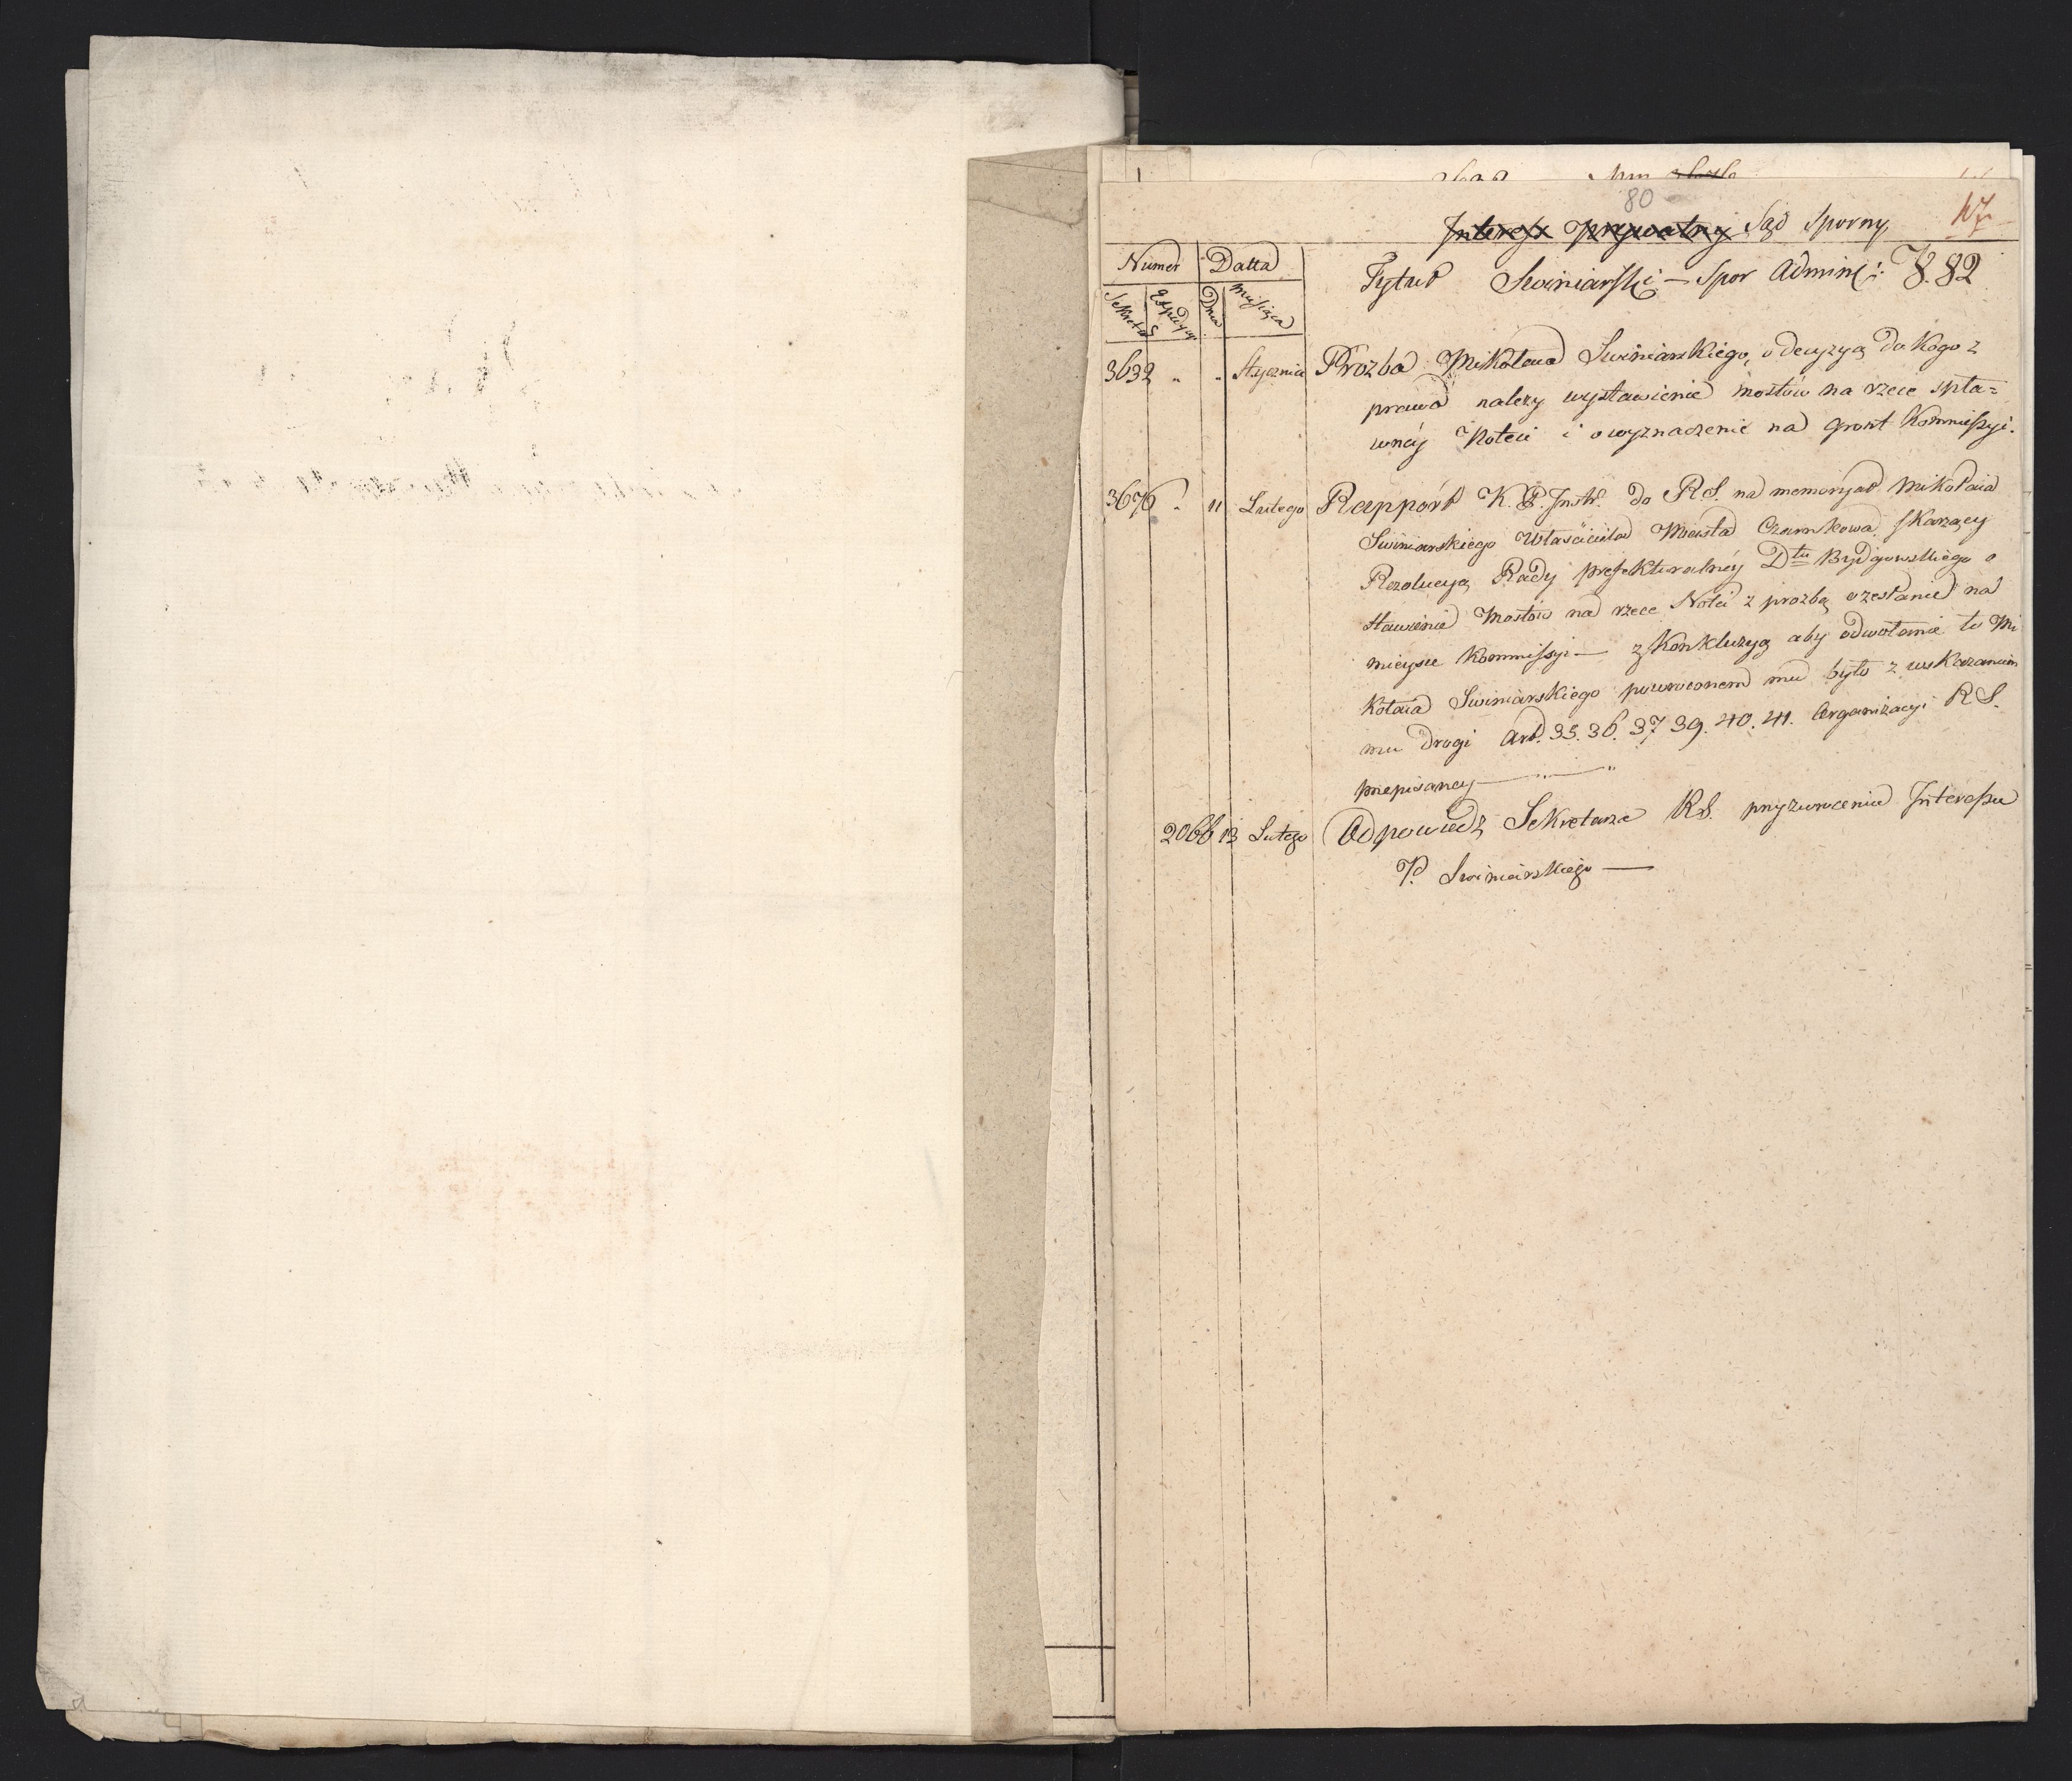 80
Interess prywatny Sąd Sporny 47
Numer Datta Tytuł Swiniarski — Spor Admin: 82
Sekretar Expedycyi Dnia Miesiąca
3632 " " Stycznia Prozba Mikołaia Swiniarskiego, o decyzyą do kogo z
prawa nalezy wystawienie mostow na rzece spła=
wnéy Noteci i o wyznaczenie na gront Kommissyi.
3676 " 11 Lutego Rapport K. P. Instr. do R.S. na memoryał Mikołaia
Swiniarskiego Własciciela Miasta Czarnkowa skarzący
Rezolucyą Rady prefekturalnéy Dtu Bydgowskiego o
stawienie Mostow na rzece Noteci z prozbą o zesłanie na
mieysce Kommissyi — z konkluzyą aby odwołanie to Mi
kołaia Swiniarskiego powroconem mu było z wskazaniem
mu drogi Art. 35. 36. 37 39. 40. 41. Organizacyi R S.
przepisaney — " — "
2066 13 Lutego Odpowiedz Sekretarza R S. przy zwroceniu Interessu
P. Swiniarskiego —